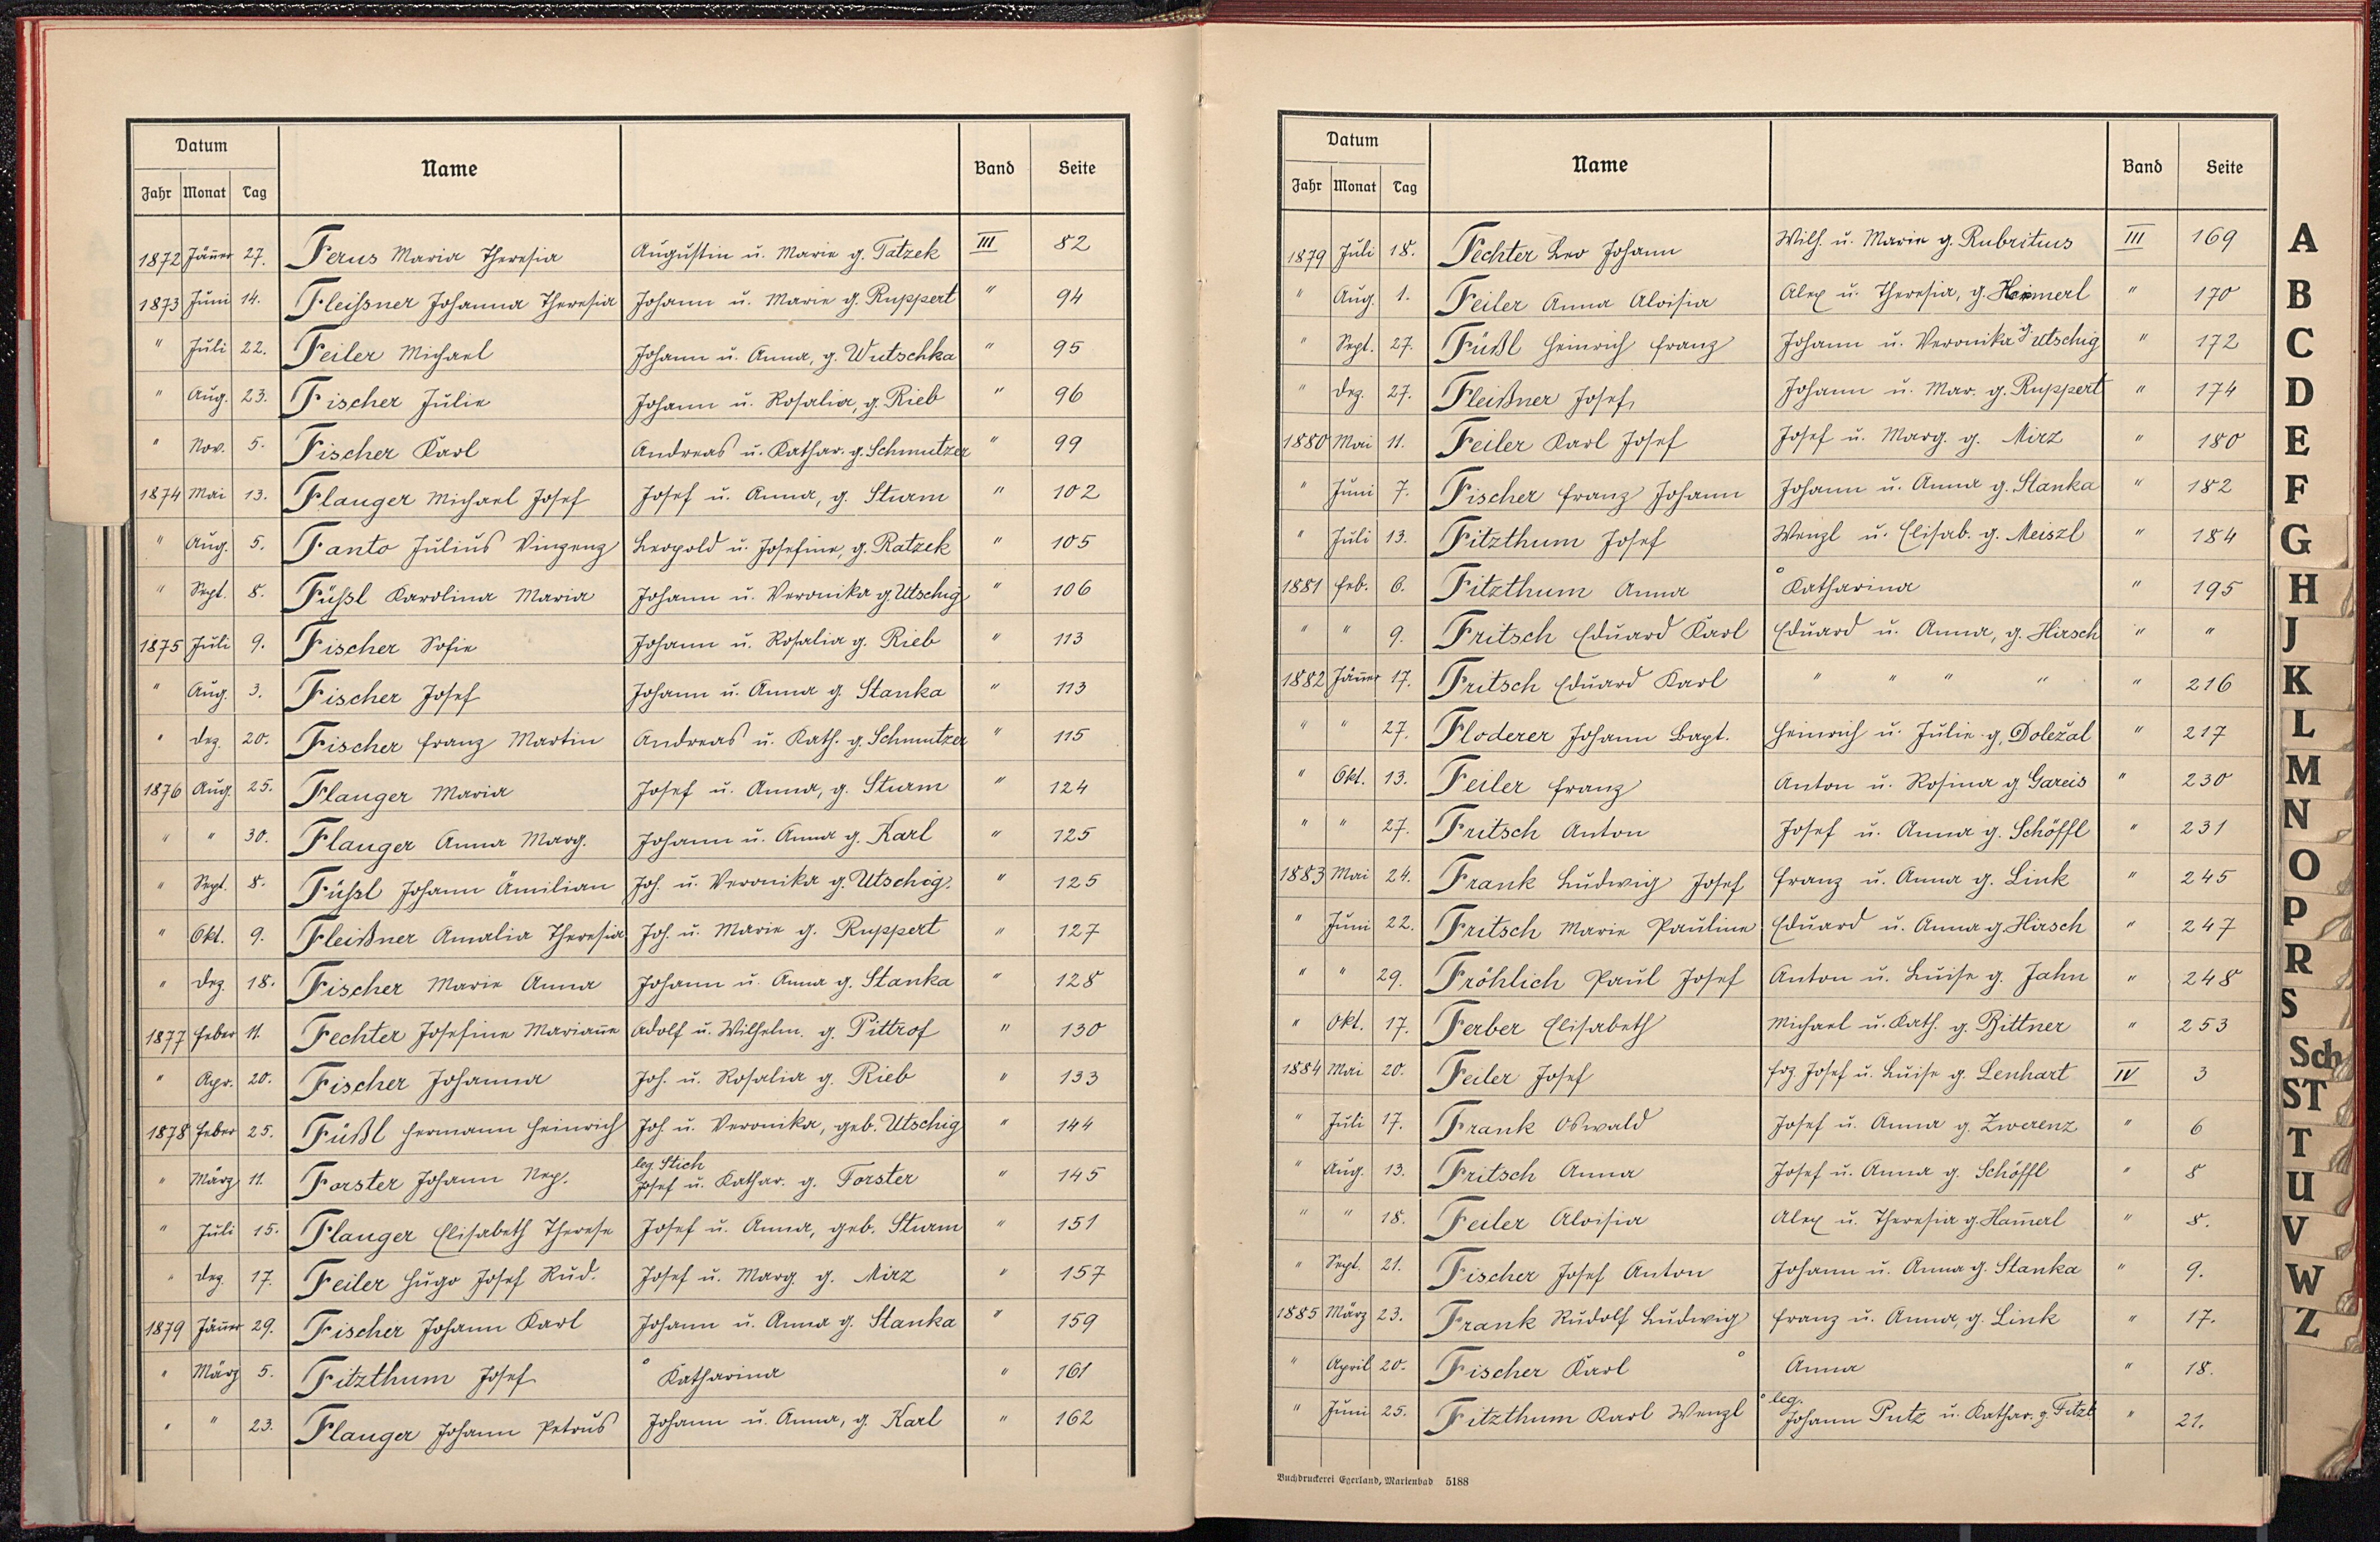 Datum Name Band Seite
Jahr Monat Tag
1872 Jäner 27. Ferus Maria Theresia Augustin u. Marie g. Tatzek III 82
1873 Juni 14. Fleißner Johanna Theresia Johann u. Marie g. Ruppert " 94
" Juli 22. Feiler Michael Johann u. Anna, g. Wutschka " 95
" Aug. 23. Fischer Julie Johann u. Rosalia, g. Rieb " 96
" Nov. 5. Fischer Karl Andreas u. Kathar. g. Schmutzer " 99
1874 Mai 13. Flauger Michael Josef Josef u. Anna, g. Sturm " 102
" Aug. 5. Fanto Julius Vinzenz Leopold u. Josefine, g. Ratzek " 105
" Sept. 8. Füßl Karolina Maria Johann u. Veronika g. Utschig " 106
1875 Juli 9. Fischer Sofie Johann u. Rosalia g. Rieb " 113
" Aug. 3. Fischer Josef Johann u. Anna g. Stanka " 113
" Dez. 20. Fischer Franz Martin Andreas u. Kath. g. Schmutzer " 115
1876 Aug. 25. Flauger Maria Josef u. Anna, g. Sturm " 124
" " 30. Flauger Anna Marg. Johann u. Anna g. Karl " 125
" Sept. 8. Füßl Johann Ämilian Joh. u. Veronika g. Utschig. " 125
" Okt. 9. Fleißner Amalia Theresia Joh. u. Marie g. Ruppert " 127
" Dez. 18. Fischer Marie Anna Johann u. Anna g. Stanka " 128
1877 Feber 11. Fechter Josefine Mariane Adolf u. Wilhelm. g. Pittrof " 130
" Apr. 20. Fischer Johanna Joh. u. Rosalia g. Rieb " 133
1878 Feber 25. Füßl Hermann Heinrich Joh. u. Veronika, geb. Utschig " 144
leg. Stich
" März 11. Forster Johann Nep. Josef u. Kathar. g. Forster " 145
" Juli 15. Flauger Elisabeth Therese Josef u. Anna, geb. Sturm " 151
" Dez. 17. Feiler Hugo Josef Rud. Josef u. Marg. g. Mirz " 157
1879 Jäner 29. Fischer Johann Karl Johann u. Anna g. Stanka " 159
" März 5. Fitzthum Josef ° Katharina " 161
" " 23. Flauger Johann Petrus Johann u. Anna, g. Karl " 162
Datum Name Band Seite
Jahr Monat Tag
1879 Juli 18. Fechter Leo Johann Wilh. u. Marie g. Rubritius III 169
" Aug. 1. Feiler Anna Aloisia Alex u. Theresia, g. Hammerl " 170
" Sept. 27. Füßl Heinrich Franz Johann u. Veronika g. Utschig " 172
" Dez. 27. Fleißner Josef Johann u. Mar. g. Ruppert " 174
1880 Mai 11. Feiler Karl Josef Josef u. Marg. g. Mirz " 180
" Juni 7. Fischer Franz Johann Johann u. Anna g. Stanka " 182
" Juli 13. Fitzthum Josef Wenzl u. Elisab. g. Meiszl " 184
1881 Feb. 6. Fitzthum Anna ° Katharina " 195
" " 9. Fritsch Eduard Karl Eduard u. Anna, g. Hirsch " "
1882 Jäner 17. Fritsch Eduard Karl " " " " " 216
" " 27. Floderer Johann Bapt. Heinrich u. Julie g. Doležal " 217
" Okt. 13. Feiler Franz Anton u. Rosina g. Gareis " 230
" " 27. Fritsch Anton Josef u. Anna g. Schöffl " 231
1883 Mai 24. Frank Ludwig Josef Franz u. Anna g. Link " 245
" Juni 22. Fritsch Marie Pauline Eduard u. Anna g. Hirsch " 247
" " 29. Fröhlich Paul Josef Anton u. Luise g. Jahn " 248
" Okt. 17. Ferber Elisabeth Michael u. Kath. g. Bittner " 253
1884 Mai 20. Feiler Josef Frz. Josef u. Luise g. Lenhart IV 3
" Juli 17. Frank Oswald Josef u. Anna g. Zwerenz " 6
" Aug. 13. Fritsch Anna Josef u. Anna g. Schöffl " 8
" " 18. Feiler Aloisia Alex u. Theresia g. Ham̄erl " 8.
" Sept. 21. Fischer Josef Anton Johann u. Anna g. Stanka " 9.
1885 März 23. Frank Rudolf Ludwig Franz u. Anna, g. Link " 17.
" April 20. Fischer Karl ° Anna " 18.
° leg.
" Juni 25. Fitzthum Karl Wenzl Johann Putz u. Kathar. g. Fitzt " 21.
Buchdruckerei Egerland, Marienbad 5188
A
B
C
D
E
F
G
H
J
K
L
M
N
O
P
R
S
Sch
ST
T
U
V
W
Z